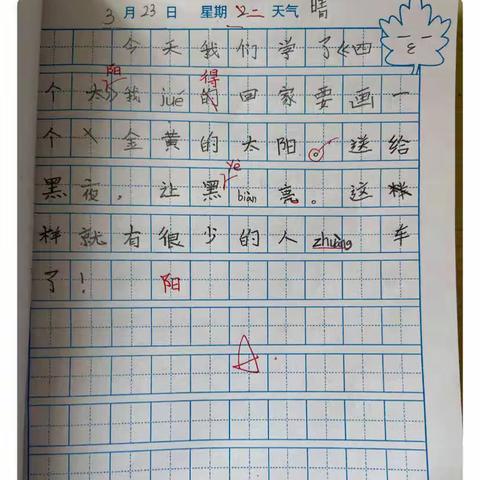 3月23日 星期二 天气 晴
今天我们学了《四
个太阳》我jué得的回家要画一
个金黄的太阳送给
黑夜，让黑yè biàn亮。这样
样就有很少的人zhuàng车
了！ 阳